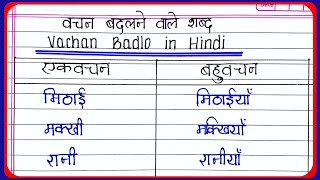 वचन बदलने वाले शब्द
Vachan Badlo in Hindi
एकवचन बहुवचन
मिठाई मिठाईयाँ
मक्खी मक्खियाँ
रानी रानीयाँ